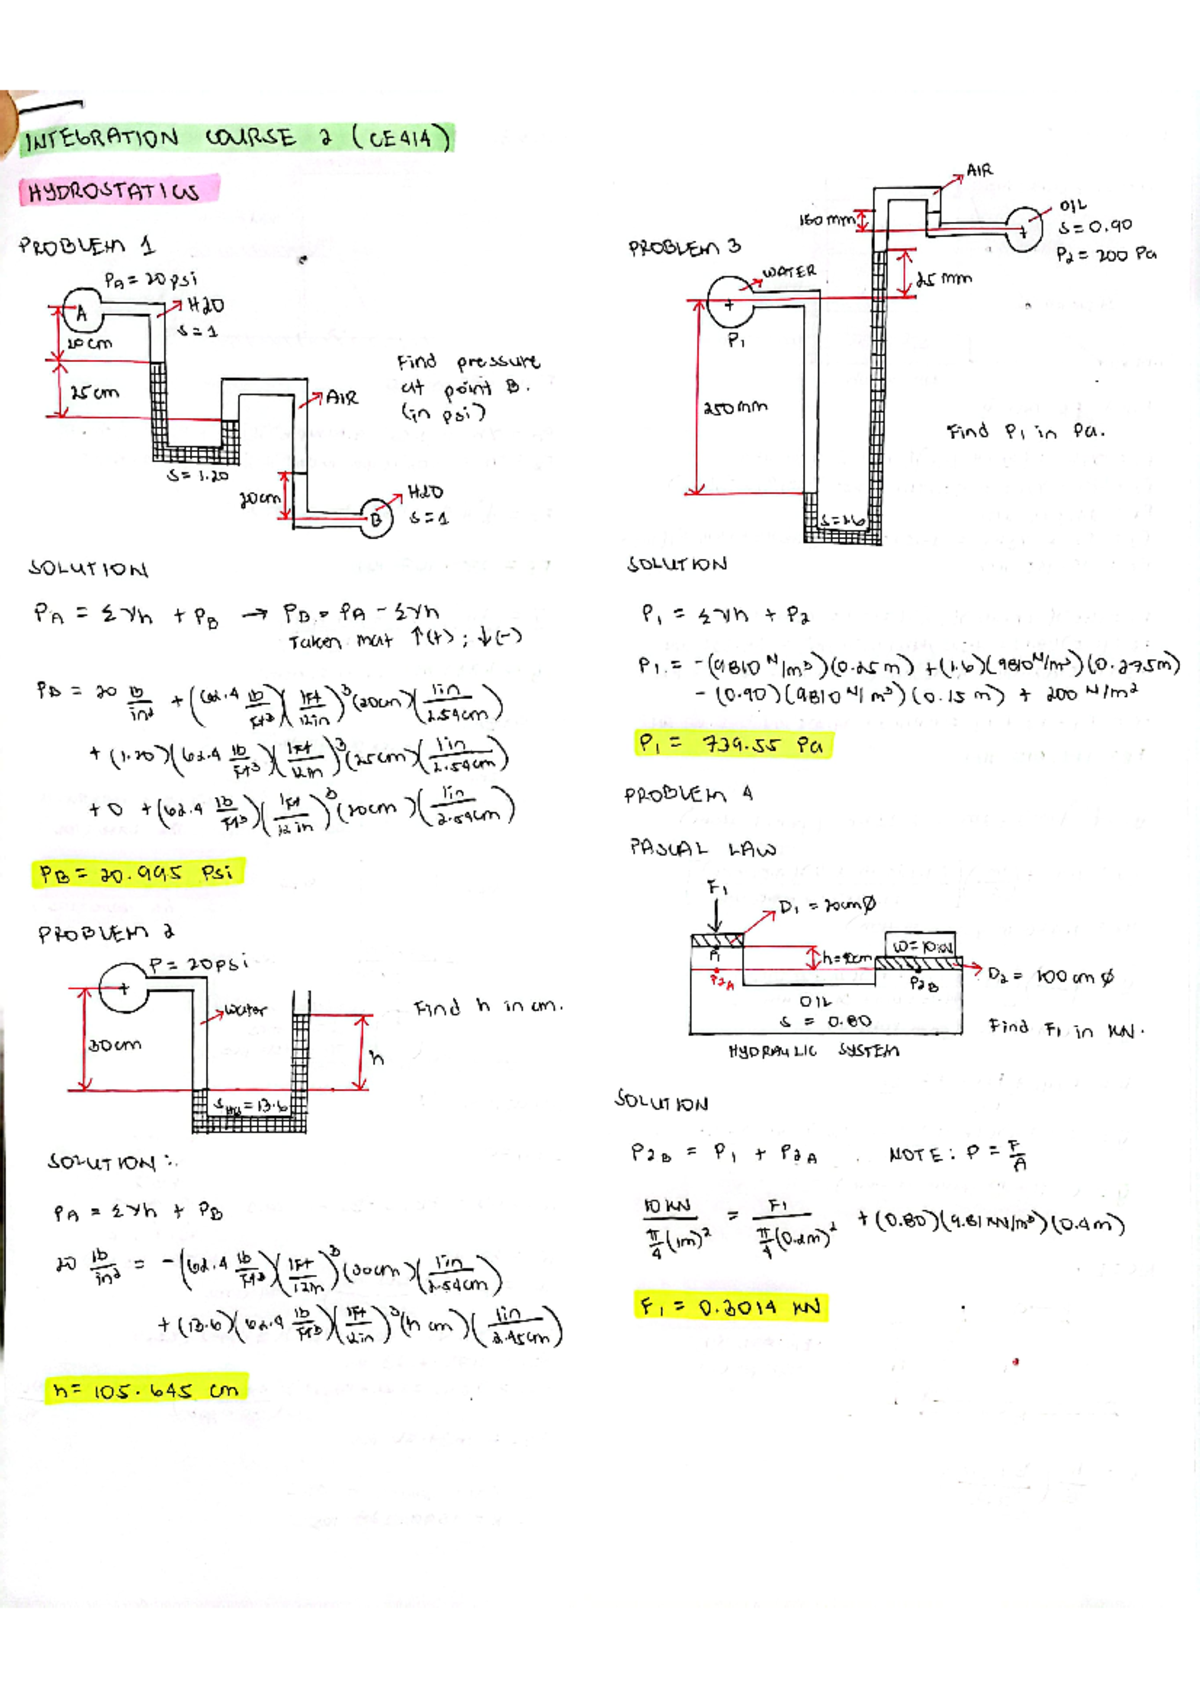 INTEGRATION COURSE 2 (CE414)
HYDROSTATICS
PROBLEM 1
PA = 20 psi
A
H2O
S = 1
20 cm
25 cm
AIR
Find pressure
at point B.
(in psi)
S = 1.20
20cm
H2O
B
S = 1
SOLUTION
PA = Σγh + PB → PB = PA - Σγh
Taken mat ↑(+) ; ↓(-)
PB = 20 lb/in² + (62.4 lb/ft³)(1ft/12in)³(20cm)(1in/2.54cm)
+ (1.20)(62.4 lb/ft³)(1ft/12in)³(25cm)(1in/2.54cm)
+ 0 + (62.4 lb/ft³)(1ft/12in)³(20cm)(1in/2.54cm)
PB = 20.995 Psi
PROBLEM 2
P = 20psi
water
Find h in cm.
30cm
h
SHg = 13.6
SOLUTION:
PA = Σγh + PB
20 lb/in² = -(62.4 lb/ft³)(1ft/12in)³(30cm)(1in/2.54cm)
+ (13.6)(62.4 lb/ft³)(1ft/12in)³(h cm)(1in/2.45cm)
h = 105.645 cm
PROBLEM 3
AIR
150 mm
OIL
S = 0.90
P2 = 200 Pa
25 mm
WATER
P1
250mm
Find P1 in Pa.
S = 1.6
SOLUTION
P1 = Σγh + P2
P1 = -(9810 N/m³)(0.25m) + (1.6)(9810 N/m³)(0.275m)
- (0.90)(9810 N/m³)(0.15 m) + 200 N/m²
P1 = 739.55 Pa
PROBLEM 4
PASCAL LAW
F1
D1 = 20cm Ø
W = 10 kN
P1
h = 40cm
P2A
P2B
D2 = 100 cm Ø
OIL
S = 0.80
Find F1 in kN.
HYDRAULIC SYSTEM
SOLUTION
P2B = P1 + P2A NOTE: P = F/A
10 kN / π/4 (1m)² = F1 / π/4 (0.2m)² + (0.80)(9.81 kN/m³)(0.4m)
F1 = 0.3014 kN